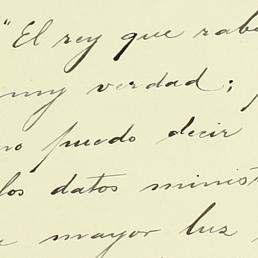 "El rey que rab
muy verdad;
no puedo decir
los datos minist
mayor luz